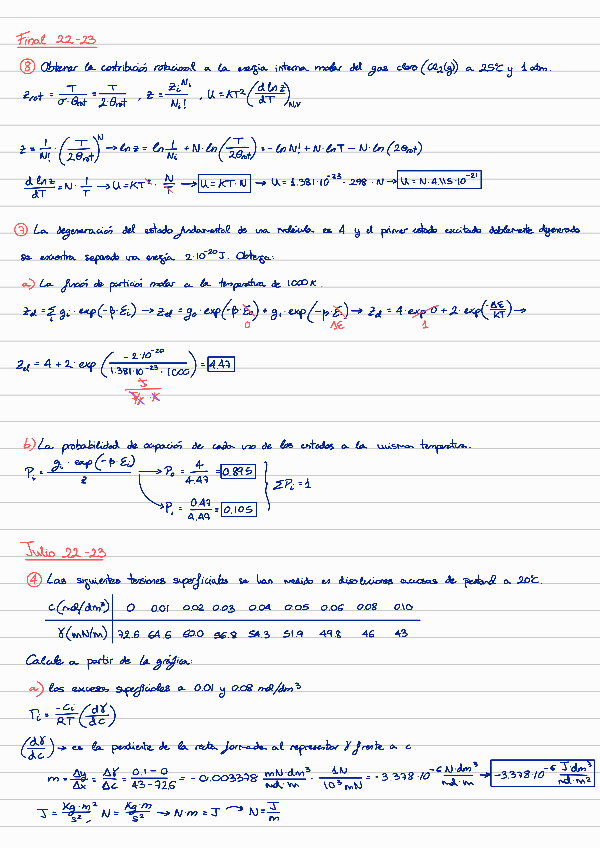 Final 22-23
⑧ Obtener la contribución rotacional a la energía interna molar del gas cloro (Cl₂(g)) a 25°C y 1 atm.
Zrot = T/(σ·θrot) = T/(2·θrot) , Z = Zi^Ni/Ni! , U = KT² (d lnz/dT)N,V
Z = 1/N! · (T/2θrot)^N → lnz = ln 1/Ni + N·ln(T/2θrot) = -lnN! + N·lnT - N·ln(2θrot)
d lnz/dT = N·1/T → U = KT²·N/T → U = KT·N → U = 1.381·10⁻²³·298·N → U = N·4.115·10⁻²¹
⑦ La degeneración del estado fundamental de una molécula es 4 y el primer estado excitado doblemente degenerado
se encuentra separado una energía 2·10⁻²⁰ J. Obtenga:
a) La función de partición molar a la temperatura de 1000 K.
Zel = Σi gi·exp(-β·Ei) → Zel = g₀·exp(-β·E₀) + g₁·exp(-β·E₁) → Zel = 4·exp 0 + 2·exp(-ΔE/KT) →
0 ΔE 1
Zel = 4 + 2·exp(-2·10⁻²⁰/(1.381·10⁻²³·1000)) = 4.47
J/(J/K·K)
b) La probabilidad de ocupación de cada uno de los estados a la misma temperatura.
Pi = gi·exp(-β·Ei)/z → P₀ = 4/4.47 = 0.895
→ P₁ = 0.47/4.47 = 0.105
ΣPi = 1
Julio 22-23
④ Las siguientes tensiones superficiales se han medido en disoluciones acuosas de pentanol a 20°C.
c (mol/dm³) 0 0.01 0.02 0.03 0.04 0.05 0.06 0.08 0.10
γ (mN/m) 72.6 64.6 60.0 56.8 54.3 51.9 49.8 46 43
Calcule a partir de la gráfica:
a) Los excesos superficiales a 0.01 y 0.08 mol/dm³
Γi = -Ci/RT (dγ/dc)
(dγ/dc) → es la pendiente de la recta formada al representar γ frente a c.
m = Δy/Δx = Δγ/Δc = (0.1-0)/(43-72.6) = -0.003378 mN·dm³/mol·m · 1N/10³mN = -3.378·10⁻⁶ N·dm³/mol·m → -3.378·10⁻⁶ J·dm³/mol·m²
J = Kg·m²/s² , N = Kg·m/s² → N·m = J → N = J/m